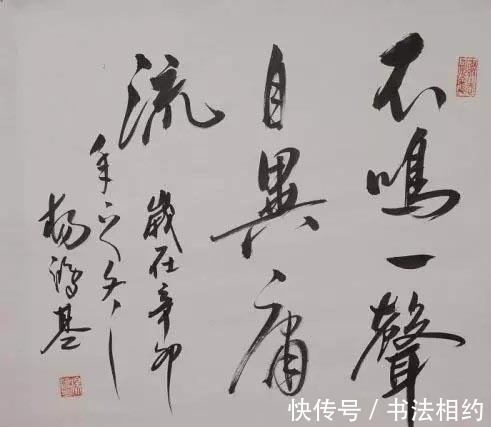 不鸣一聲
自異庸
流
歲在辛卯
年之冬
杨鸿基
快传号 / 书法相约